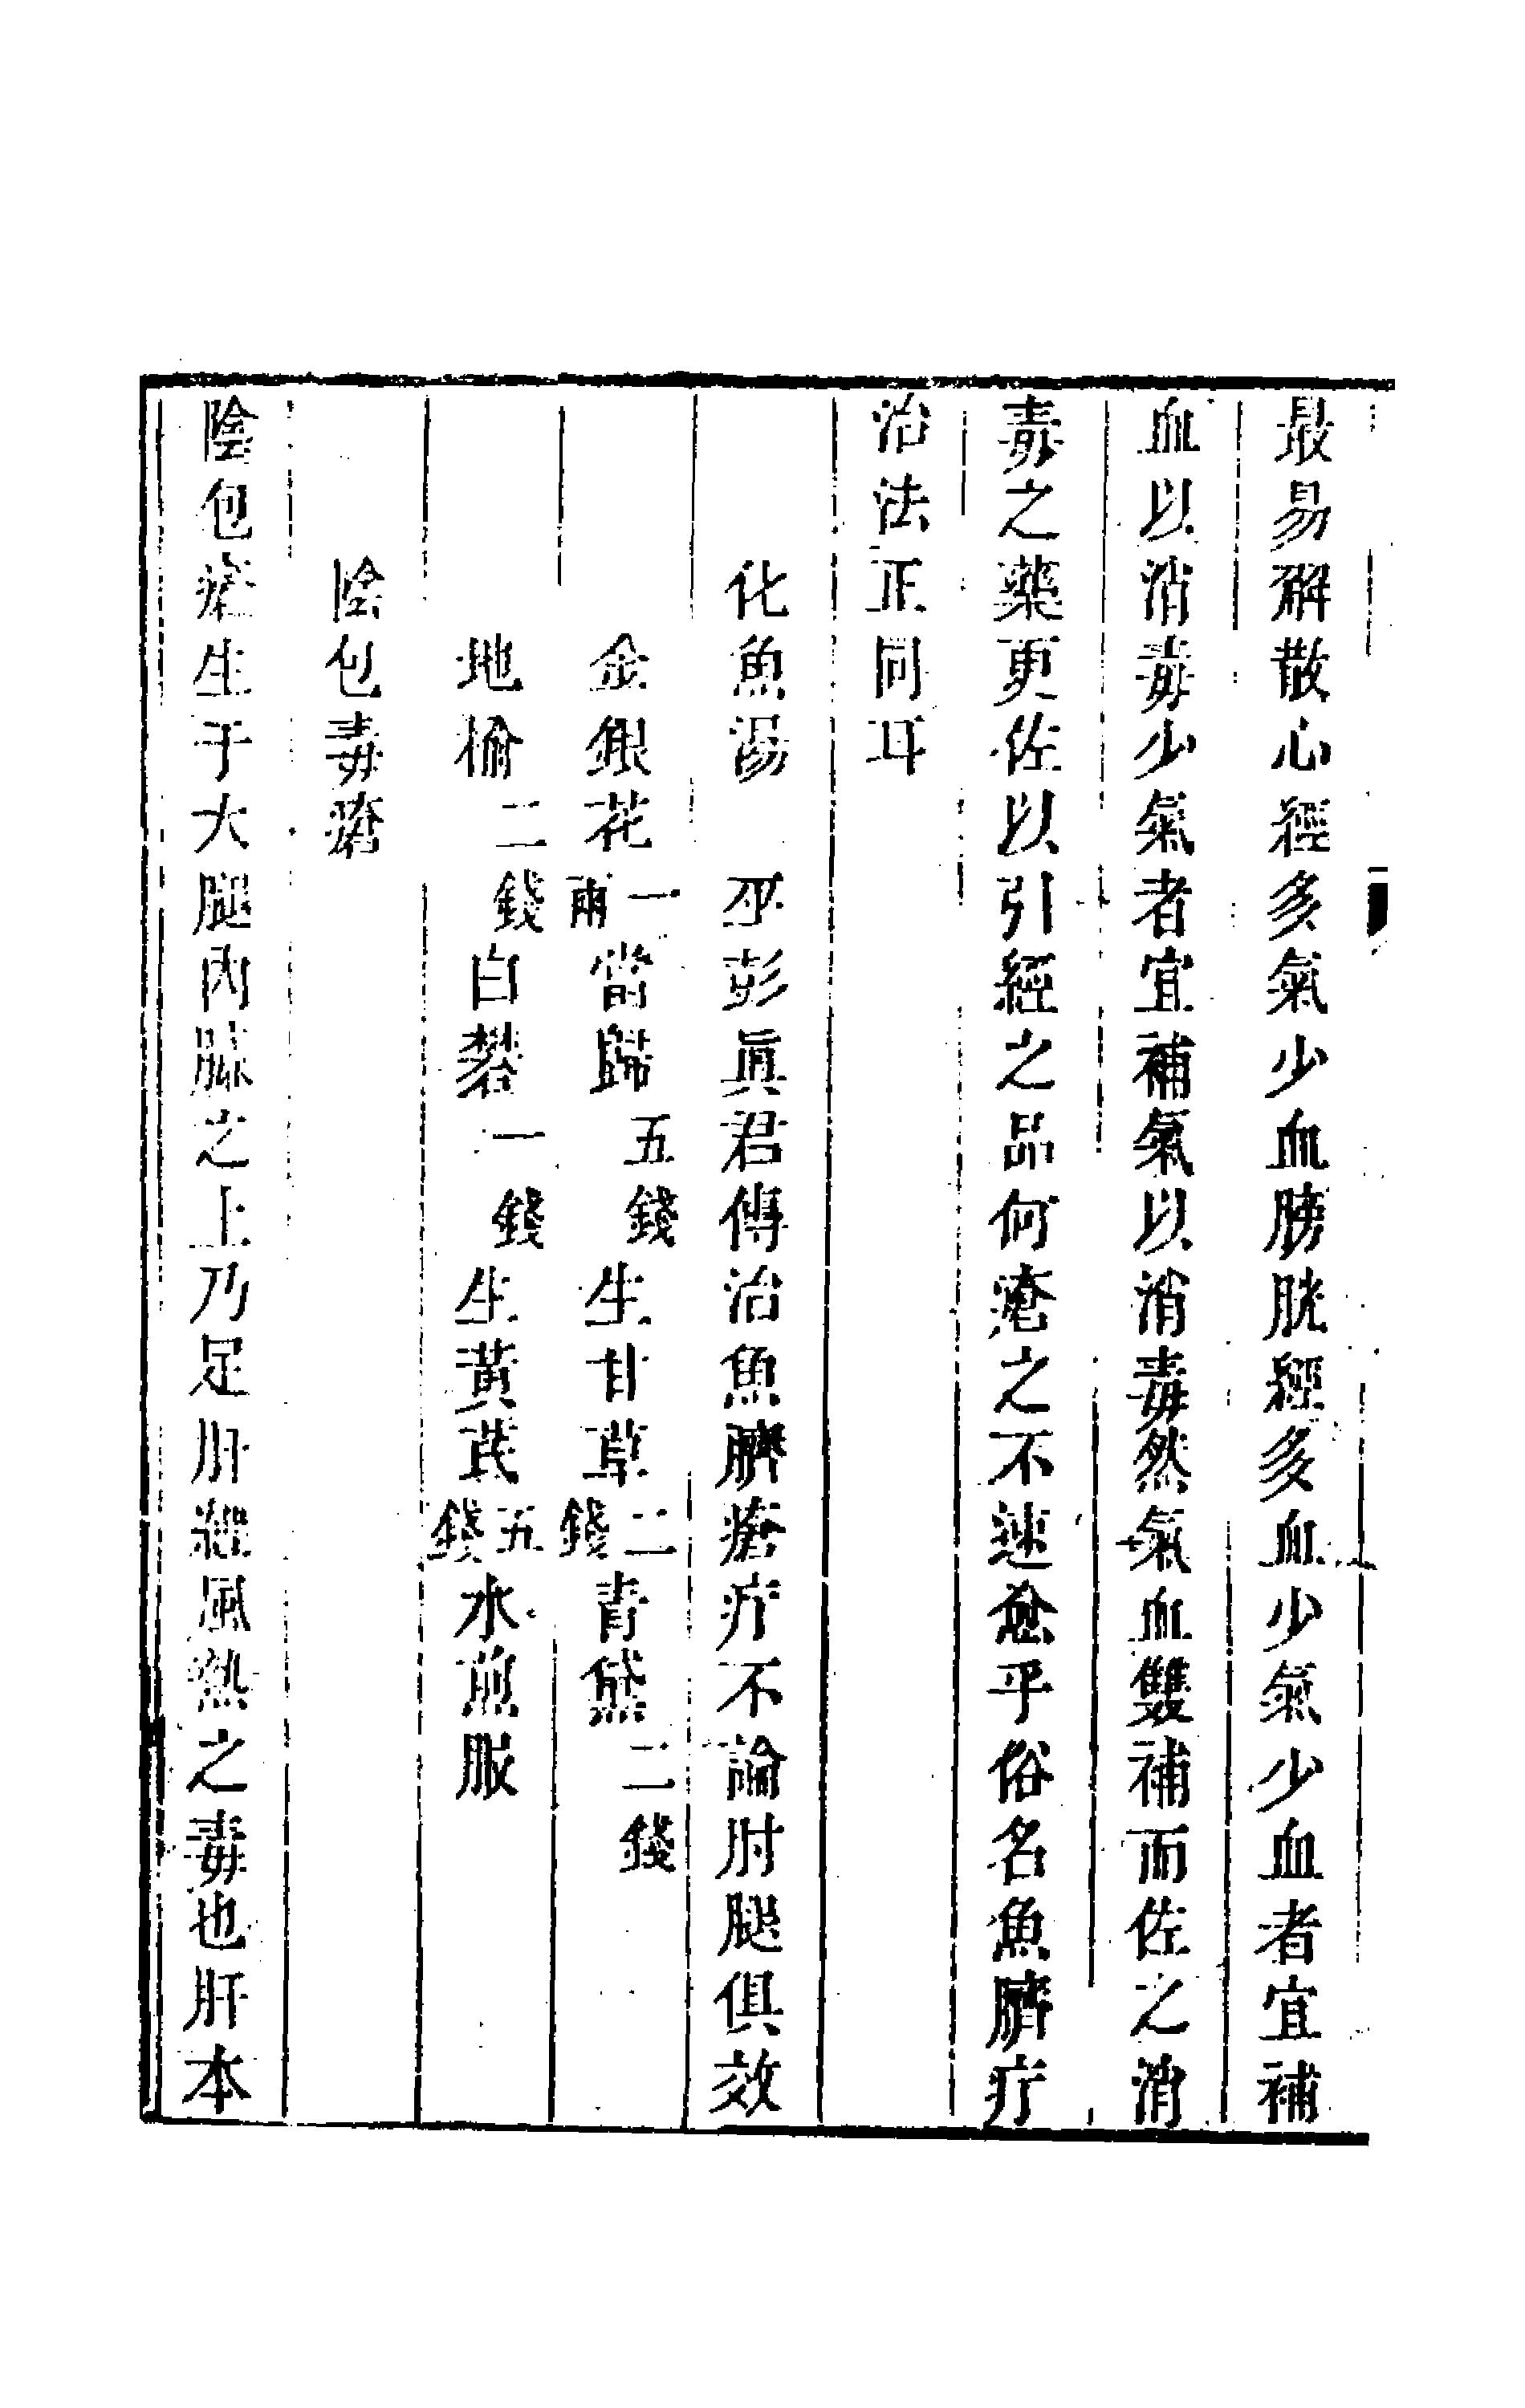 最易解散心經多氣少血膀胱經多血少氣少血者宜補
血以消毒少氣者宜補氣以消毒然氣血雙補而佐之消
毒之藥更佐以引經之品何瘡之不速愈乎俗名魚臍疔
治法正同耳
化魚湯 巫彭眞君傳治魚臍瘡疔不論肘腿俱效
金銀花一兩當歸五錢生甘草二錢青黛二錢
地榆二錢白礬一錢生黃芪五錢水煎服
陰包毒瘡
陰包瘡生于大腿內臁之上乃足肝經風熱之毒也肝本